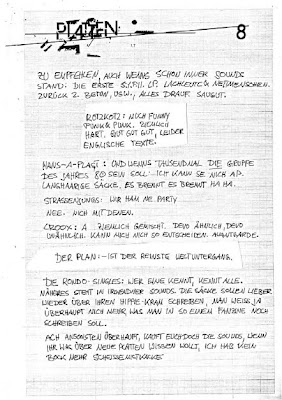 PLATTEN 8
ZU EMPFEHLEN, AUCH WENNS SCHON IN SOUNDS
STAND: DIE ERSTE S.Y.P.H. LP
ZURÜCK Z. BETON, USW., ALLES DRAUF. SAUGUT.
ROTZKOTZ: NOCH FUNNY
PUNK & PUNK. ZIEMLICH
HART. GUT GUT GUT, LEIDER
ENGLISCHE TEXTE.
HANS-A-PLAST: UND WENNS TAUSENDMAL DIE GRUPPE
DES JAHRES 80 SEIN SOLL: ICH KANN SE NICH AB.
LANGHAARIGE SÄCKE, ES BRENNT ES BRENNT HA HA.
STRASSENJUNGS: WIR HAM NE PARTY
NEE. NICH MIT DENEN.
A ZIEMLICH GEMISCHT. DEVO ÄHNLICH, DEVO
UNÄHNLICH. KANN MICH NICH SO ENTSCHEIDEN. AVANTGARDE.
DER PLAN: - IST DER REINSTE WELTUNTERGANG.
DIE RONDO-SINGLES: WER EINE KENNT, KENNT ALLE.
NÄHERES STEHT IN IRGENDEINER SOUNDS. DIE SÄCKE SOLLEN LIEBER
WIEDER ÜBER IHREN HIPPIE-KRAM SCHREIBEN, MAN WEISS JA
ÜBERHAUPT NICH MEHR WAS MAN IN SO EINEM FANZINE NOCH
SCHREIBEN SOLL.
ACH ANSONSTEN ÜBERHAUPT, KAUFT EUCH DOCH DIE SOUNDS, WENN
IHR WAS ÜBER NEUE PLATTEN WISSEN WOLLT, ICH HAB KEIN
BOCK MEHR